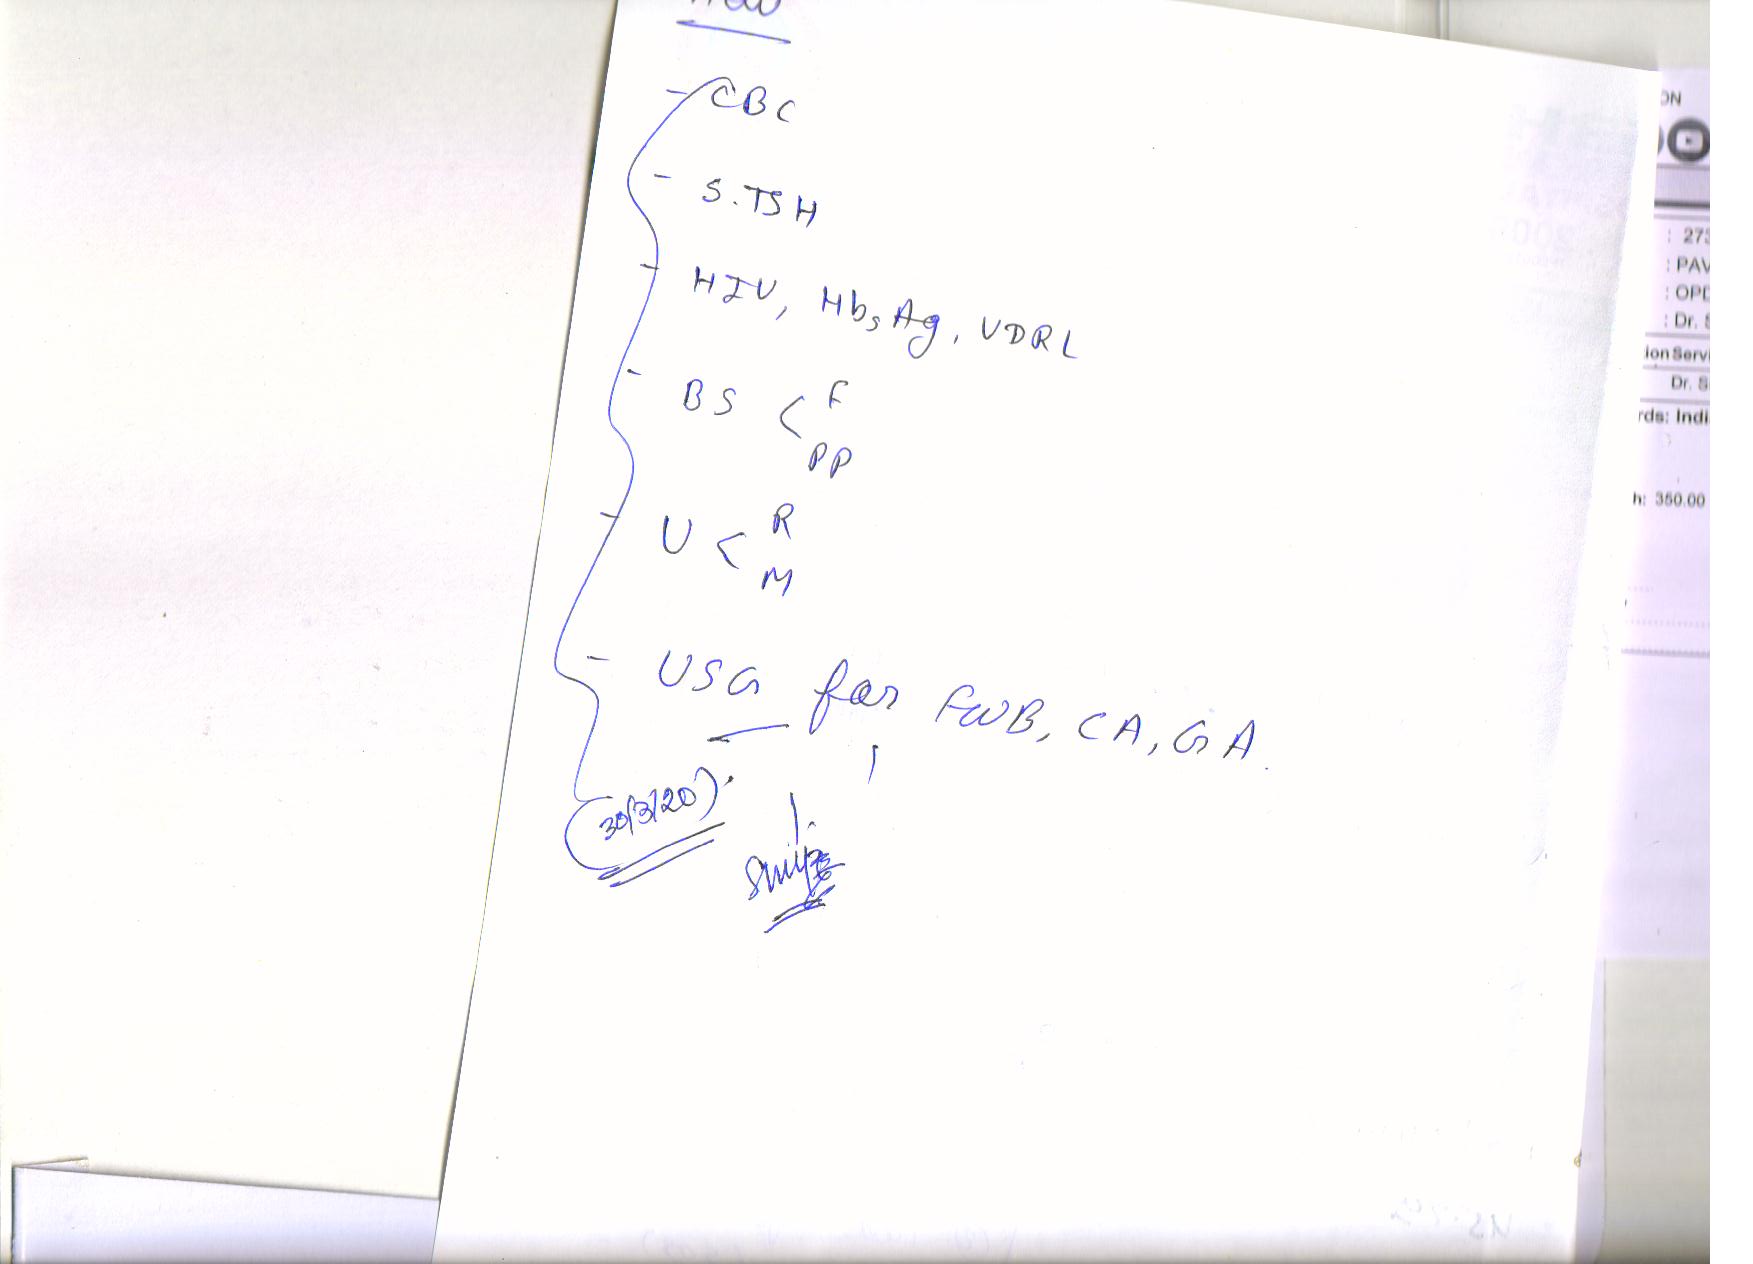 - CBC
- S.TSH
- HIV, HbsAg, VDRL
- BS < F
PP
- U < R
M
- USG for FWB, CA, GA.
(30/3/20)
ON
: 273
: PAV
: OPD
: Dr. S
ion Servi
Dr. S
rds: Indi
h: 350.00